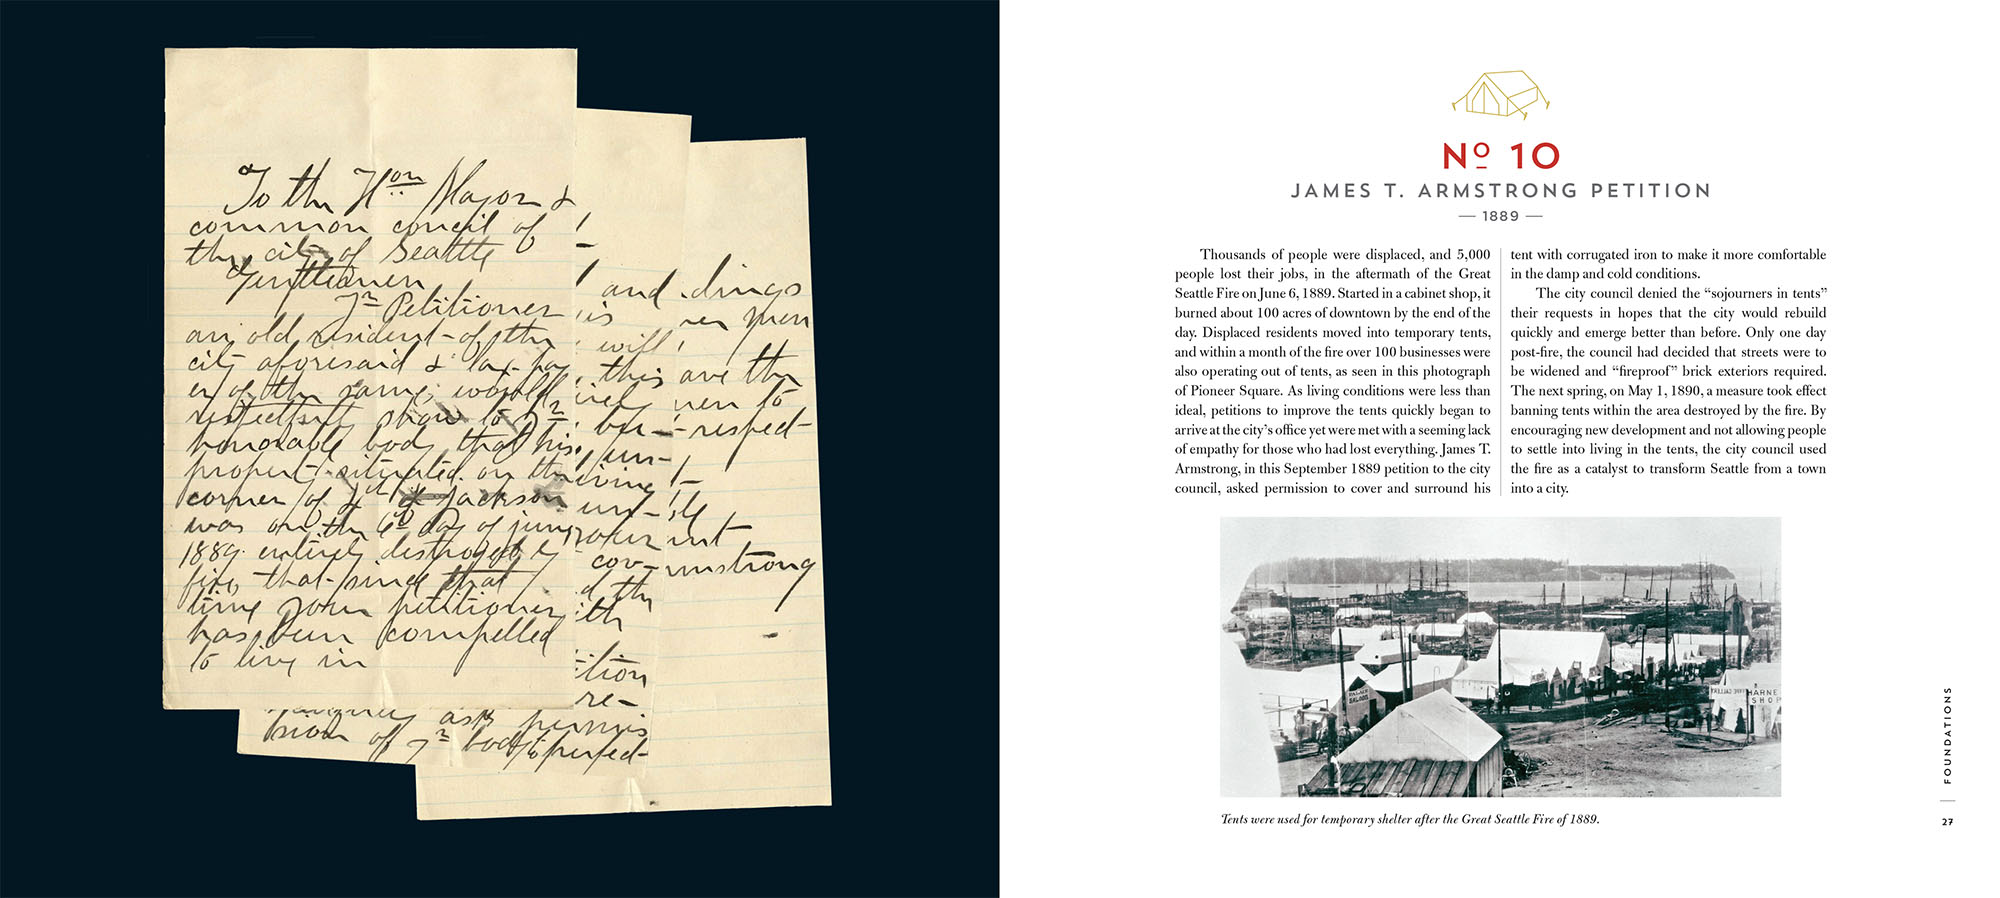 To the Hon Mayor &
common concil of
the city of Seattle
Gentlemen
Yr Petitioner
an old resident of the
city aforesaid & tax pay
er of the same, would
respectfully show to yr
honorable body that his
property situated on the
corner of & Jackson
was on the 6th day of june
1889 entirely destroyed by
fire, that since that
time your petitioner
has been compelled
to live in
and
will
this
cov-
the
ition
re-
ask permis
sion of yr body
dings
men
ave the
to
respect-
mstrong
Nº 10
JAMES T. ARMSTRONG PETITION
— 1889 —
Thousands of people were displaced, and 5,000
people lost their jobs, in the aftermath of the Great
Seattle Fire on June 6, 1889. Started in a cabinet shop, it
burned about 100 acres of downtown by the end of the
day. Displaced residents moved into temporary tents,
and within a month of the fire over 100 businesses were
also operating out of tents, as seen in this photograph
of Pioneer Square. As living conditions were less than
ideal, petitions to improve the tents quickly began to
arrive at the city’s office yet were met with a seeming lack
of empathy for those who had lost everything. James T.
Armstrong, in this September 1889 petition to the city
council, asked permission to cover and surround his
tent with corrugated iron to make it more comfortable
in the damp and cold conditions.
The city council denied the “sojourners in tents”
their requests in hopes that the city would rebuild
quickly and emerge better than before. Only one day
post-fire, the council had decided that streets were to
be widened and “fireproof” brick exteriors required.
The next spring, on May 1, 1890, a measure took effect
banning tents within the area destroyed by the fire. By
encouraging new development and not allowing people
to settle into living in the tents, the city council used
the fire as a catalyst to transform Seattle from a town
into a city.
PALACE
SALOON
HARNE
SHOP
Tents were used for temporary shelter after the Great Seattle Fire of 1889.
FOUNDATIONS
27